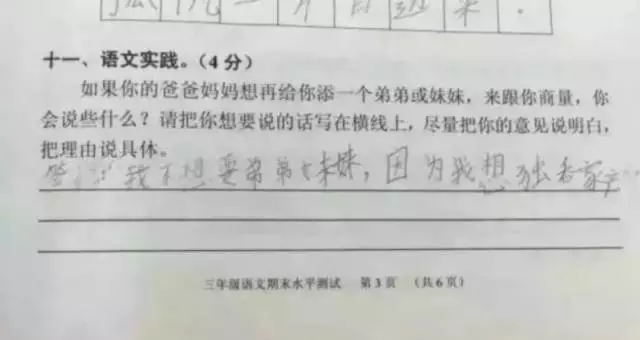 十一、语文实践。（4分）
如果你的爸爸妈妈想再给你添一个弟弟或妹妹，来跟你商量，你
会说些什么？请把你想要说的话写在横线上，尽量把你的意见说明白，
把理由说具体。
答：我不想要弟弟妹妹，因为我想独吞家产
三年级语文期末水平测试 第3页 （共6页）